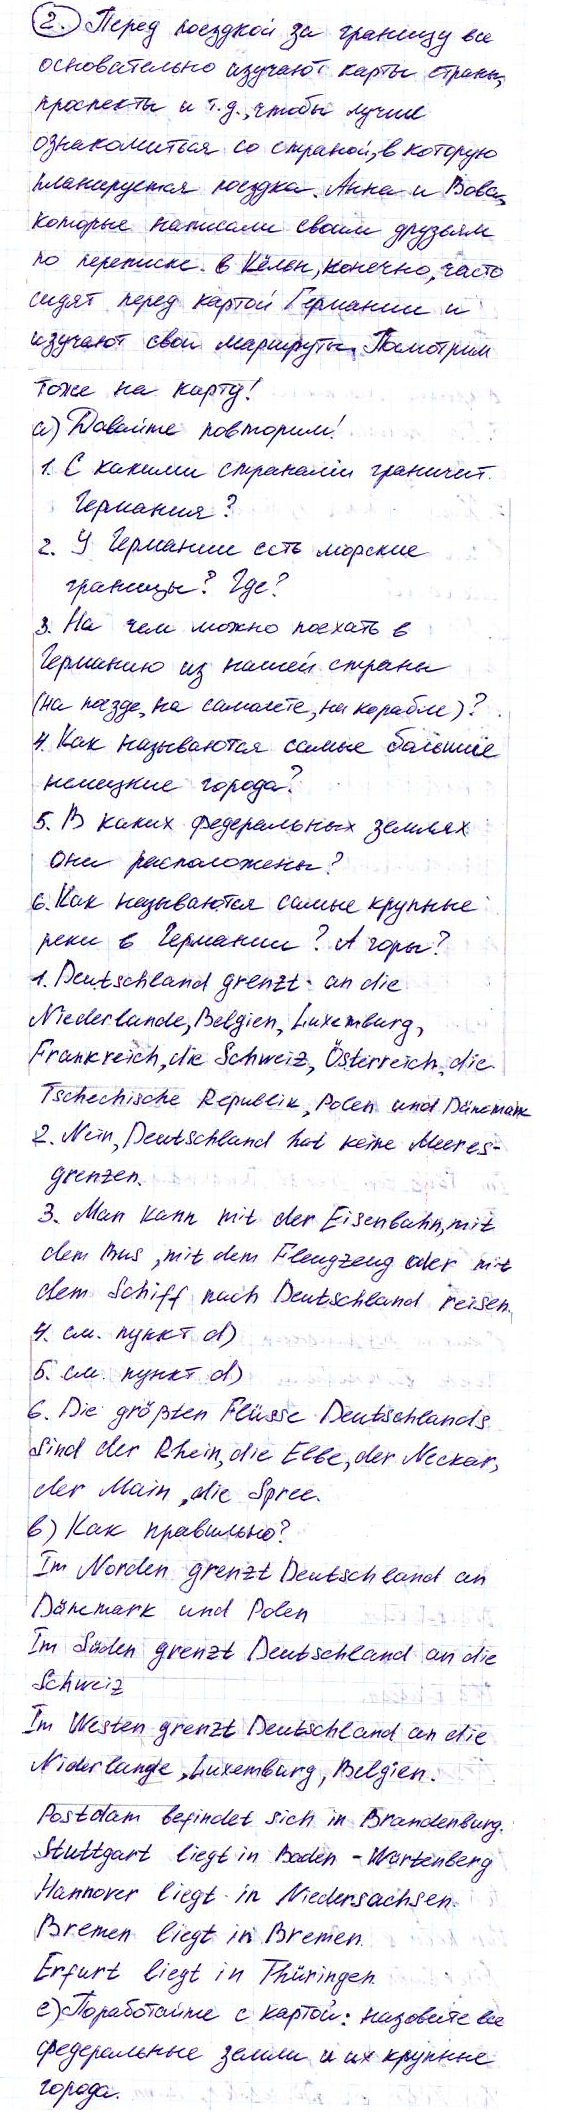 2. Перед поездкой за границу все
основательно изучают карты страны,
проспекты и т.д., чтобы лучше
ознакомиться со страной, в которую
планируется поездка. Анна и Вова,
которые написали своим друзьям
по переписке в Кёльн, конечно, часто
сидят перед картой Германии и
изучают свои маршруты. Посмотрим
тоже на карту!
а) Давайте повторим!
1. С какими странами граничит
Германия?
2. У Германии есть морские
границы? Где?
3. На чем можно поехать в
Германию из нашей страны
(на поезде, на самолете, на корабле)?
4. Как называются самые большие
немецкие города?
5. В каких федеральных землях
они расположены?
6. Как называются самые крупные
реки в Германии? А горы?
1. Deutschland grenzt an die
Niederlande, Belgien, Luxemburg,
Frankreich, die Schweiz, Österreich, die
Tschechische Republik, Polen und Dänemark
2. Nein, Deutschland hat keine Meeres-
grenzen.
3. Man kann mit der Eisenbahn, mit
dem Bus, mit dem Fleugzeug oder mit
dem Schiff nach Deutschland reisen.
4. см. пункт d)
5. см. пункт d)
6. Die größten Flüsse Deutschlands
sind der Rhein, die Elbe, der Neckar,
der Main, die Spree.
b) Как правильно?
Im Norden grenzt Deutschland an
Dänemark und Polen
Im Süden grenzt Deutschland an die
Schweiz
Im Westen grenzt Deutschland an die
Niderlange, Luxemburg, Belgien.
Postdam befindet sich in Brandenburg.
Stuttgart liegt in Baden - Wurtenberg
Hannover liegt in Niedersachsen.
Bremen liegt in Bremen.
Erfurt liegt in Thüringen
c) Поработайте с картой: назовите все
федеральные земли и их крупные
города.